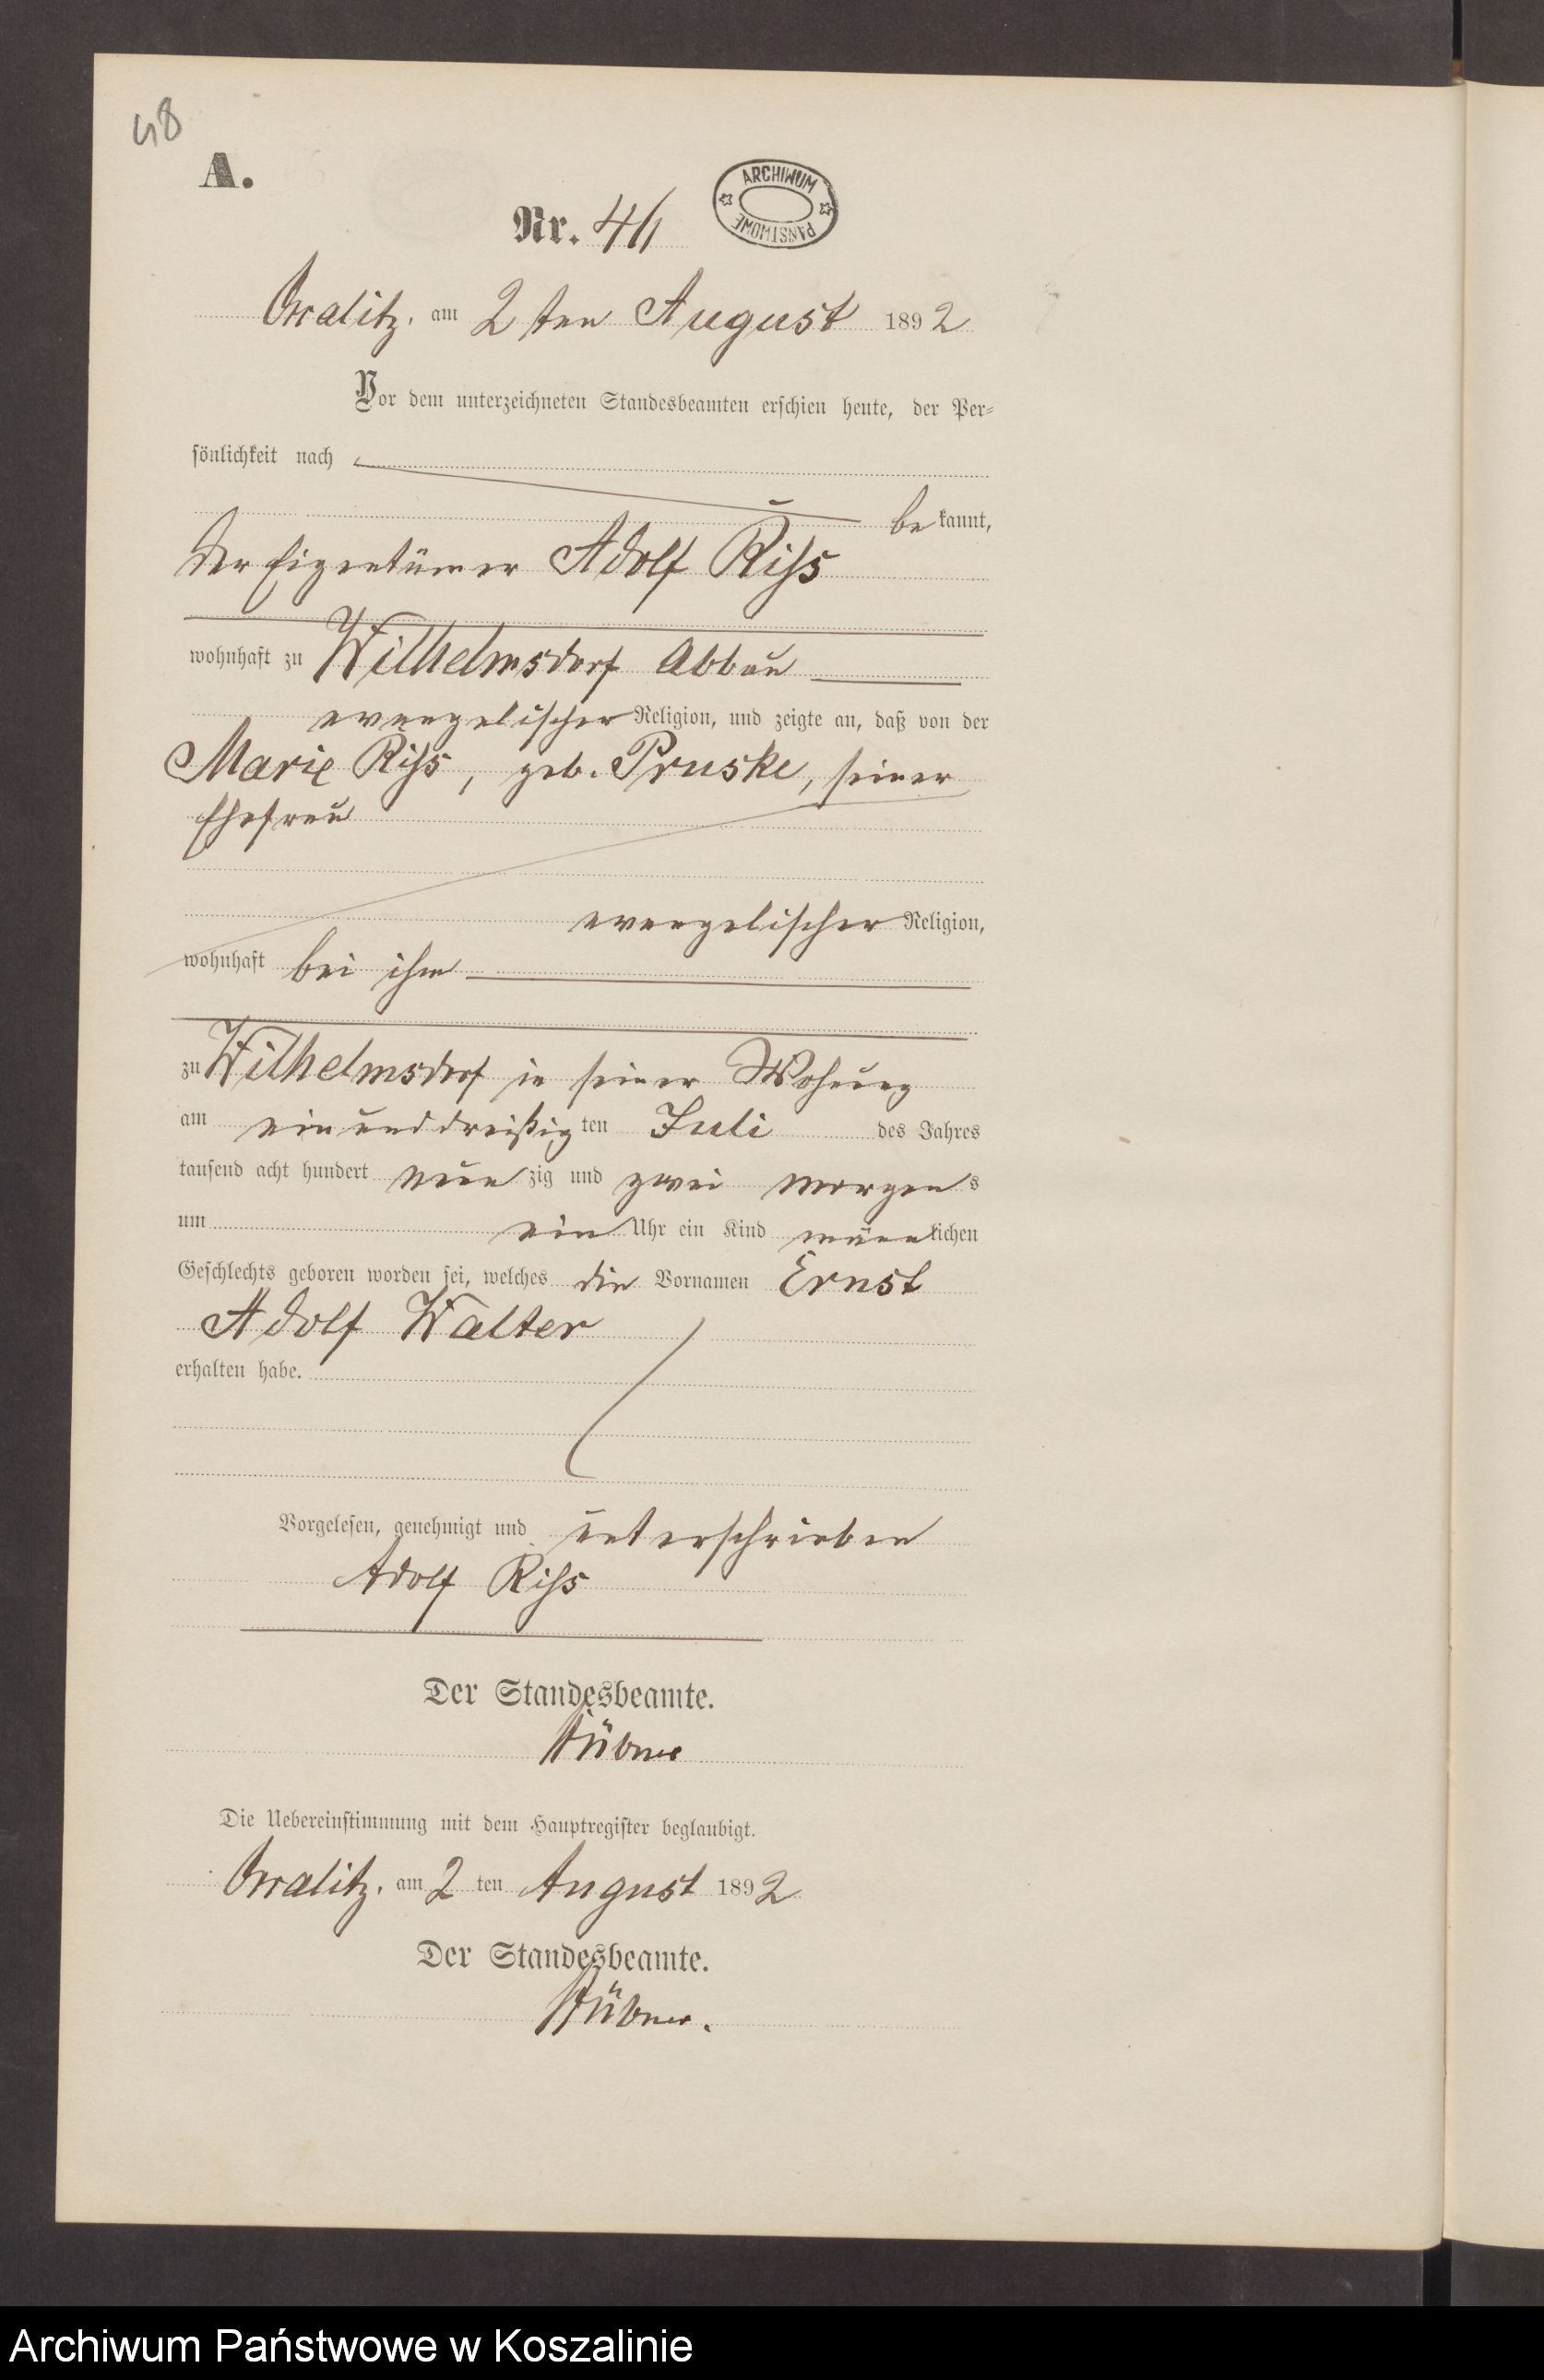 48
A.
ARCHIWUM
PAŃSTWOWE
Nr. 46
am 2 ten August 1892
Vor dem unterzeichneten Standesbeamten erschien heute, der Per-
sönlichkeit nach
bekannt,
der Eigentümer Adolf Riss
wohnhaft zu Wilhelmsdorf Abbau
evangelischer Religion, und zeigte an, daß von der
Marie Riss, geb. Pruske, seiner
Ehefrau
evangelischer Religion,
wohnhaft bei ihm
zu Wilhelmsdorf in seiner Wohnung
am einunddreißigten Juli des Jahres
tausend acht hundert neunzig und zwei morgens
um ein Uhr ein Kind männlichen
Geschlechts geboren worden sei, welches die Vornamen Ernst
Adolf Walter
erhalten habe.
Vorgelesen, genehmigt und unterschrieben
Adolf Riss
Der Standesbeamte.
Hübner
Die Uebereinstimmung mit dem Hauptregister beglaubigt.
am 2 ten August 1892
Der Standesbeamte.
Hübner.
Archiwum Państwowe w Koszalinie